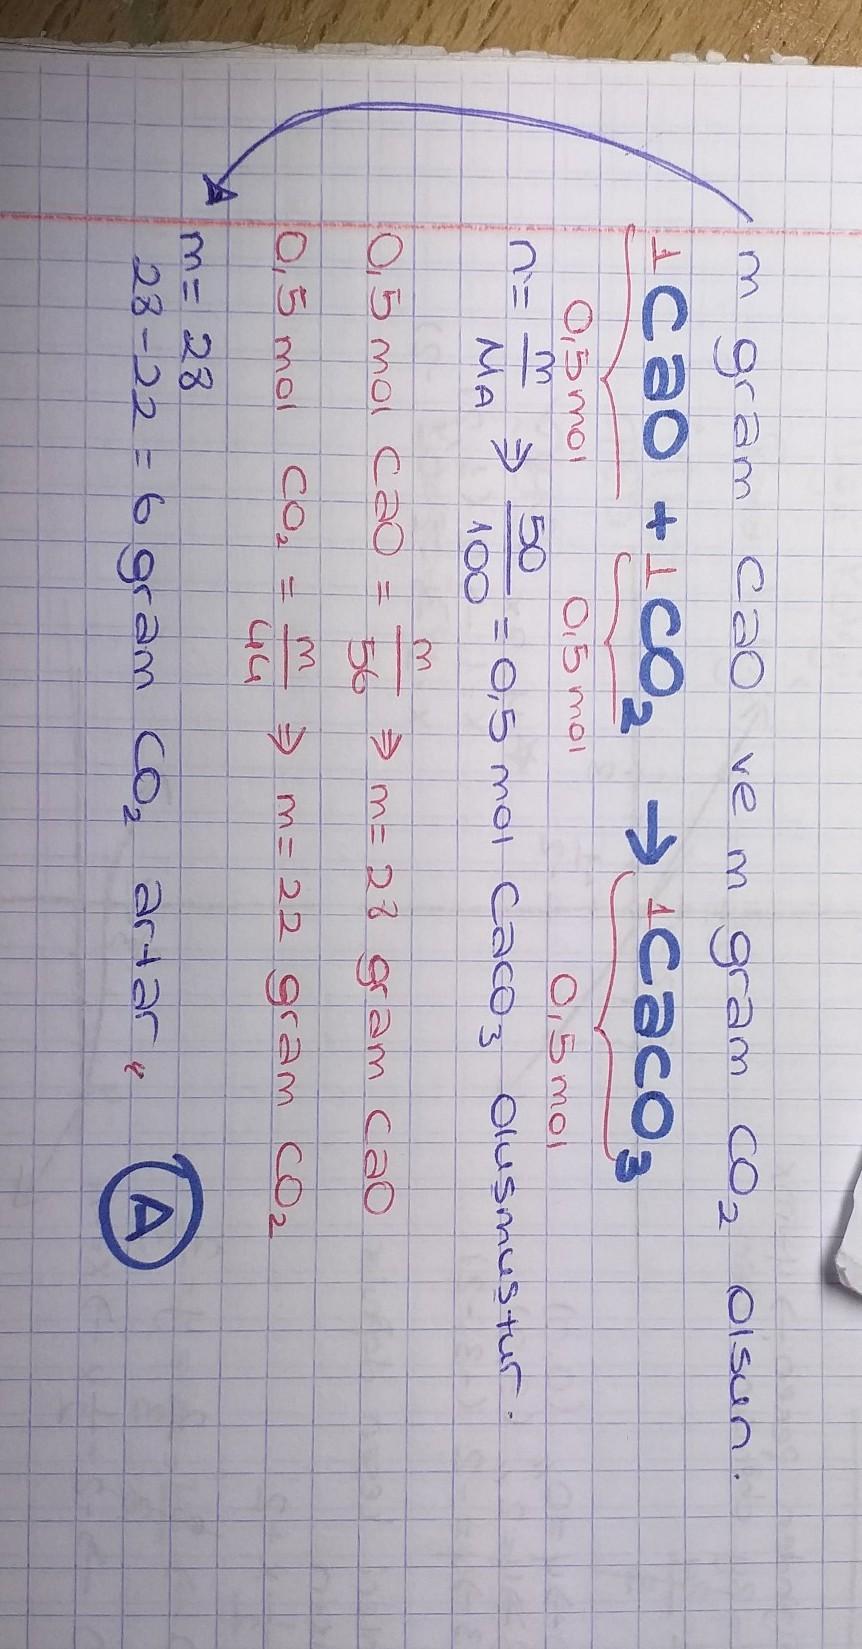 m gram CaO ve m gram CO₂ olsun.
1CaO + 1CO₂ → 1CaCO₃
0,5mol 0,5mol 0,5mol
n = m/MA ⇒ 50/100 = 0,5 mol CaCO₃ olusmustur.
0,5 mol CaO = m/56 ⇒ m = 28 gram CaO
0,5 mol CO₂ = m/44 ⇒ m = 22 gram CO₂
m = 28
28-22 = 6 gram CO₂ artar,,
A